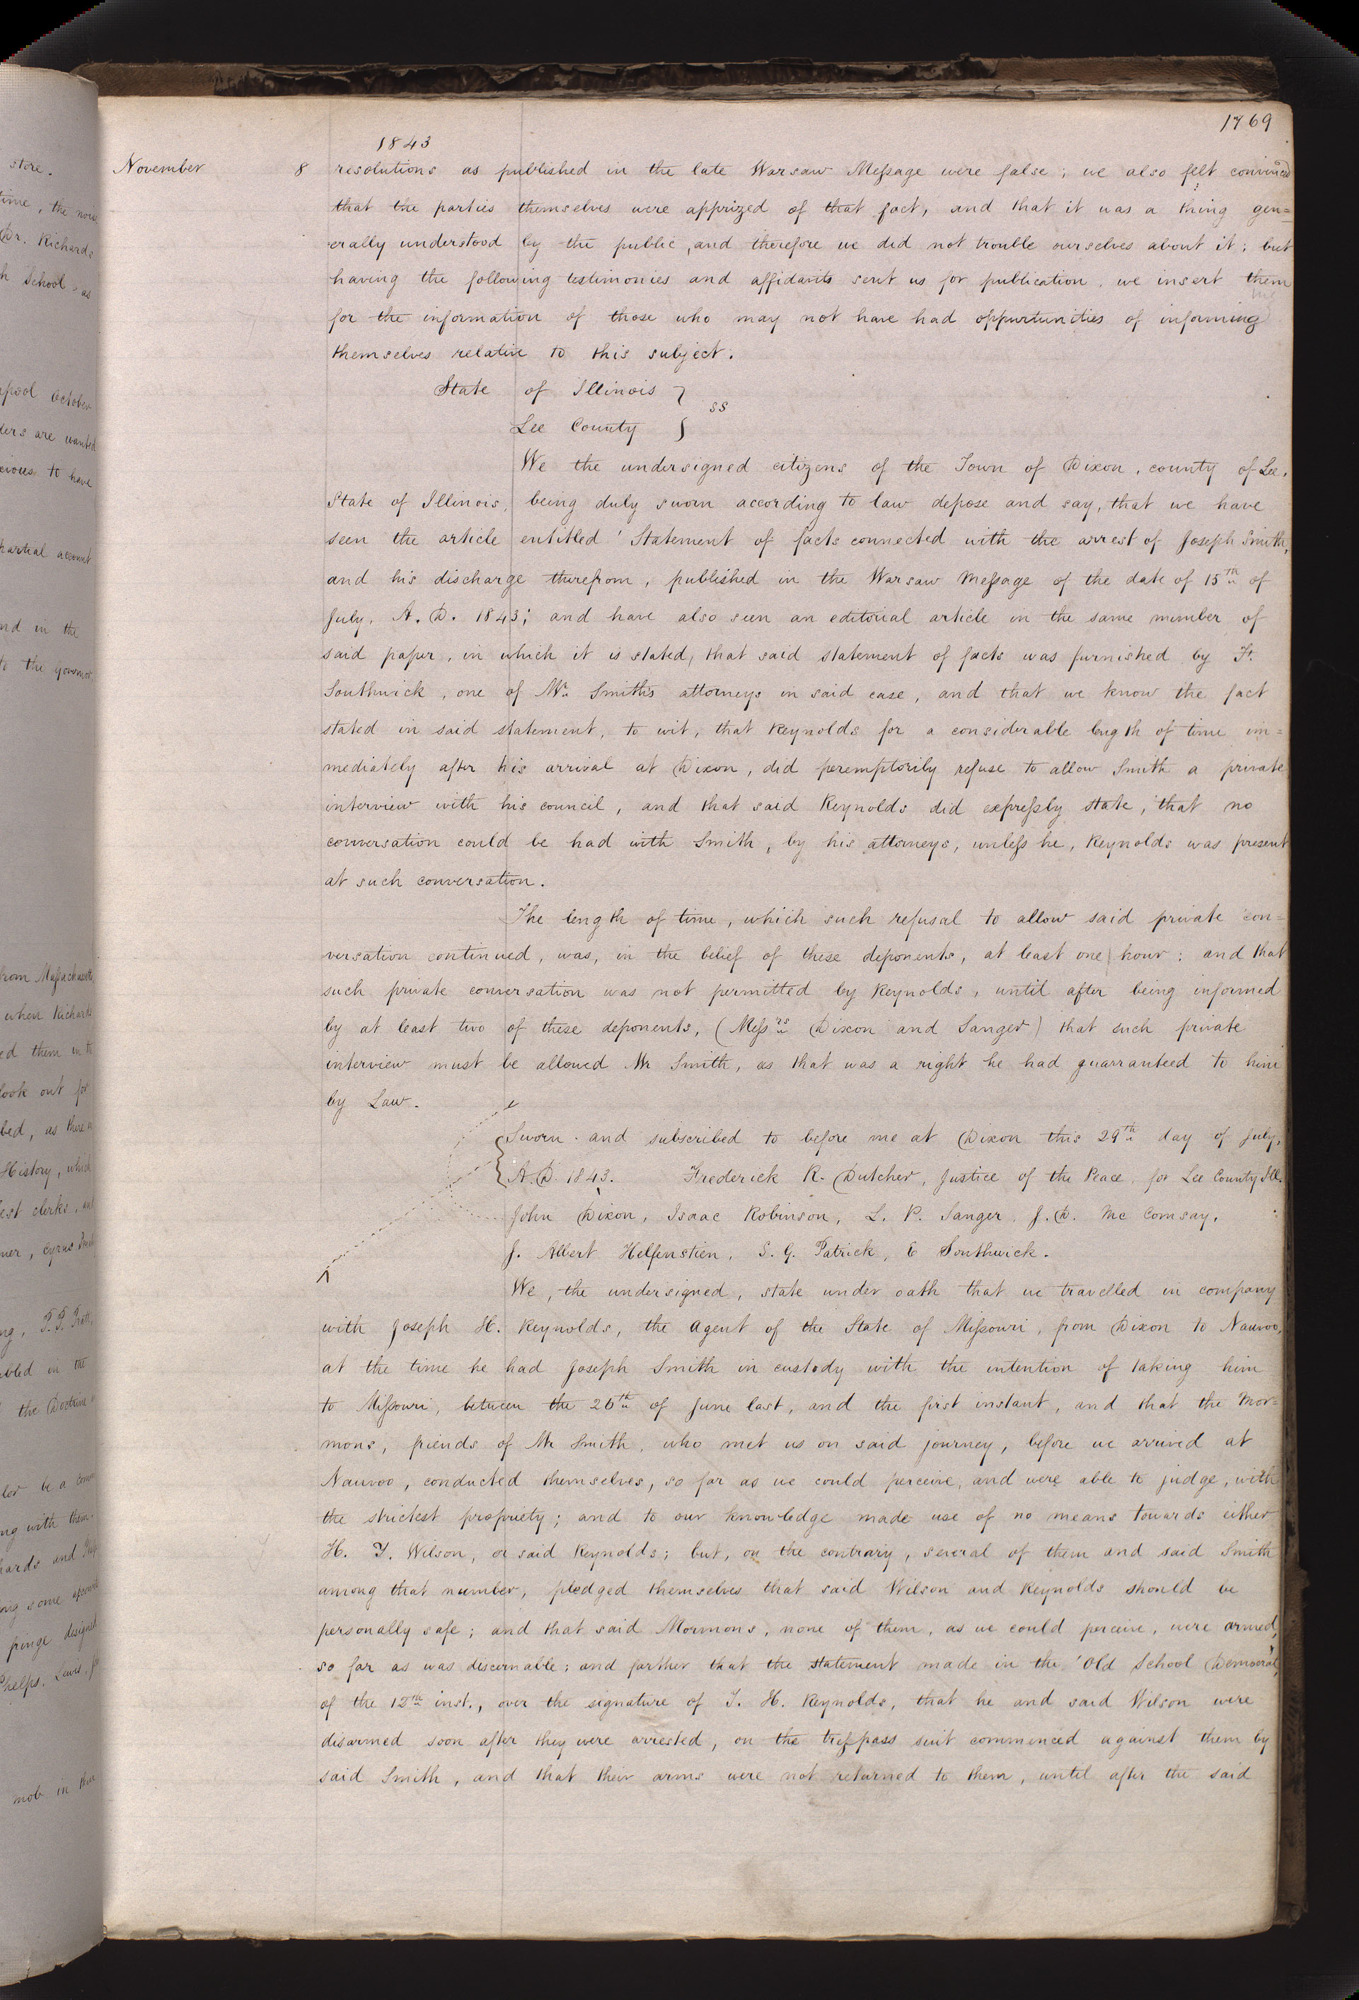 1769
1843
November 8 resolutions as published in the late Warsaw Message were false; we also felt convinced
that the parties themselves were apprized of that fact, and that it was a thing gen=
erally understood by the public, and therefore we did not trouble ourselves about it; but
having the following testimonies and affidavits sent us for publication, we insert them
for the information of those who may not have had oppurtunities of informing
themselves relative to this subject.
State of Illinois }
Lee County } ss
We the undersigned citizens of the Town of Dixon, county of Lee,
State of Illinois, being duly sworn according to law depose and say, that we have
seen the article entitled 'Statement of facts connected with the arrest of Joseph Smith,
and his discharge therefrom, published in the Warsaw Message of the date of 15th of
July, A. D. 1843; and have also seen an editorial article in the same number of
said paper, in which it is stated, that said statement of facts was furnished by
Southwick, one of Mr. Smith's attorneys in said case, and that we know the fact
stated in said statement, to wit, that Reynolds for a considerable length of time im=
mediately after his arrival at Dixon, did peremptorily refuse to allow Smith a private
interview with his council, and that said Reynolds did expressly state, 'that no
conversation could be had with Smith, by his attorneys, unless he, Reynolds was present
at such conversation.
The length of time, which such refusal to allow said private con=
versation continued, was, in the belief of these deponents, at least one hour; and that
such private conversation was not permitted by Reynolds, until after being informed
by at least two of these deponents, (Messrs Dixon and Sanger) that such private
interview must be allowed Mr Smith, as that was a right he had guarranteed to him
by Law.
Sworn and subscribed to before me at Dixon this 29th day of July,
A. D. 1843. Frederick R. Dutcher, Justice of the Peace, for Lee County Ill.
John Dixon, Isaac Robinson, L. P. Sanger, J. D. Mc Comsay,
J. Albert Helfenstien, S. G. Patrick, E Southwick.
We, the undersigned, state under oath that we travelled in company
with Joseph H. Reynolds, the Agent of the State of Missouri, from Dixon to Nauvoo,
at the time he had Joseph Smith in custody with the intention of taking him
to Missouri, between the 26th of June last, and the first instant, and that the Mor=
mons, friends of Mr Smith, who met us on said journey, before we arrived at
Nauvoo, conducted themselves, so far as we could perceive, and were able to judge, with
the strictest propriety; and to our knowledge made use of no means towards either
H. T. Wilson, or said Reynolds; but, on the contrary, several of them and said Smith
among that number, pledged themselves that said Wilson and Reynolds should be
personally safe; and that said Mormons, none of them, as we could perceive, were armed,
so far as was discernable; and farther that the statement made in the 'Old School Democrat,'
of the 12th inst., over the signature of J. H. Reynolds, that he and said Wilson were
disarmed soon after they were arrested, on the tresspass suit commenced against them by
said Smith, and that their arms were not returned to them, until after the said